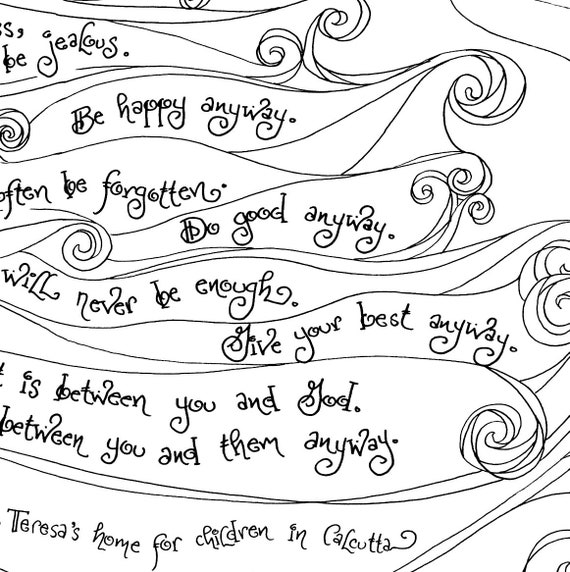 be jealous.
Be happy anyway.
often be forgotten.
Do good anyway.
will never be enough.
Give your best anyway.
is between you and God.
between you and them anyway.
Teresa's home for children in Calcutta